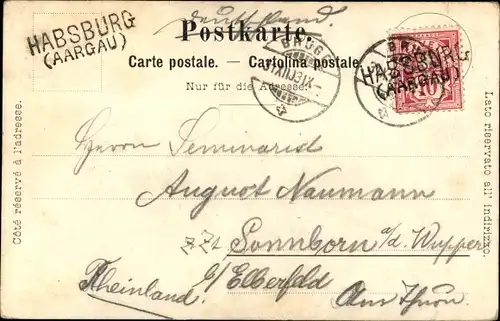 HABSBURG
(AARGAU)
Deutschland.
Postkarte.
Carte postale. — Cartolina postale.
Nur für die Adresse.
BRUGG
HABSBURG
(AARGAU)
10
Côté réservé à l'adresse.
Lato riservato all' indirizzo.
Herrn Seminarist
August Naumann
z Zt. Sonnborn a/d. Wupper
b/ Elberfeld
Rheinland.
Am Thurn.